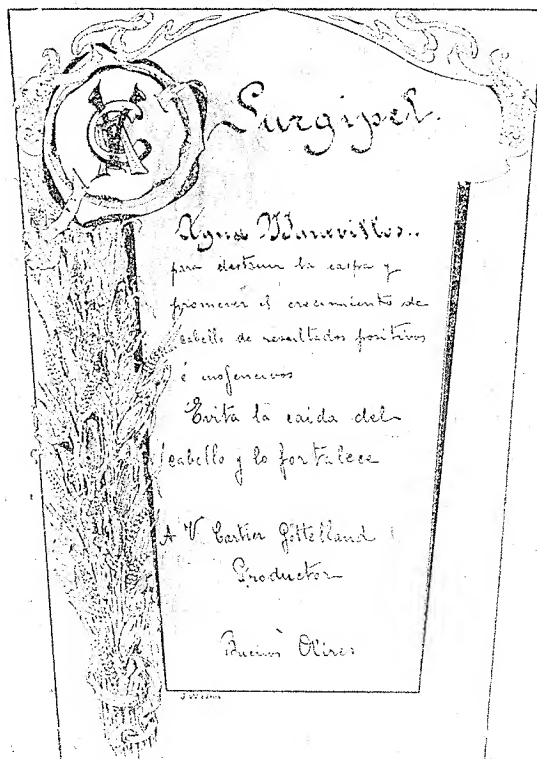 Surgipel.
Agua Maravillosa..
para destruir la caspa y
promover el crecimiento de
cabello de resultados positivos
é inofensivos
Evita la caida del
cabello y lo fortalece
A V. Cartier Gottelland
Productor
Buenos Aires